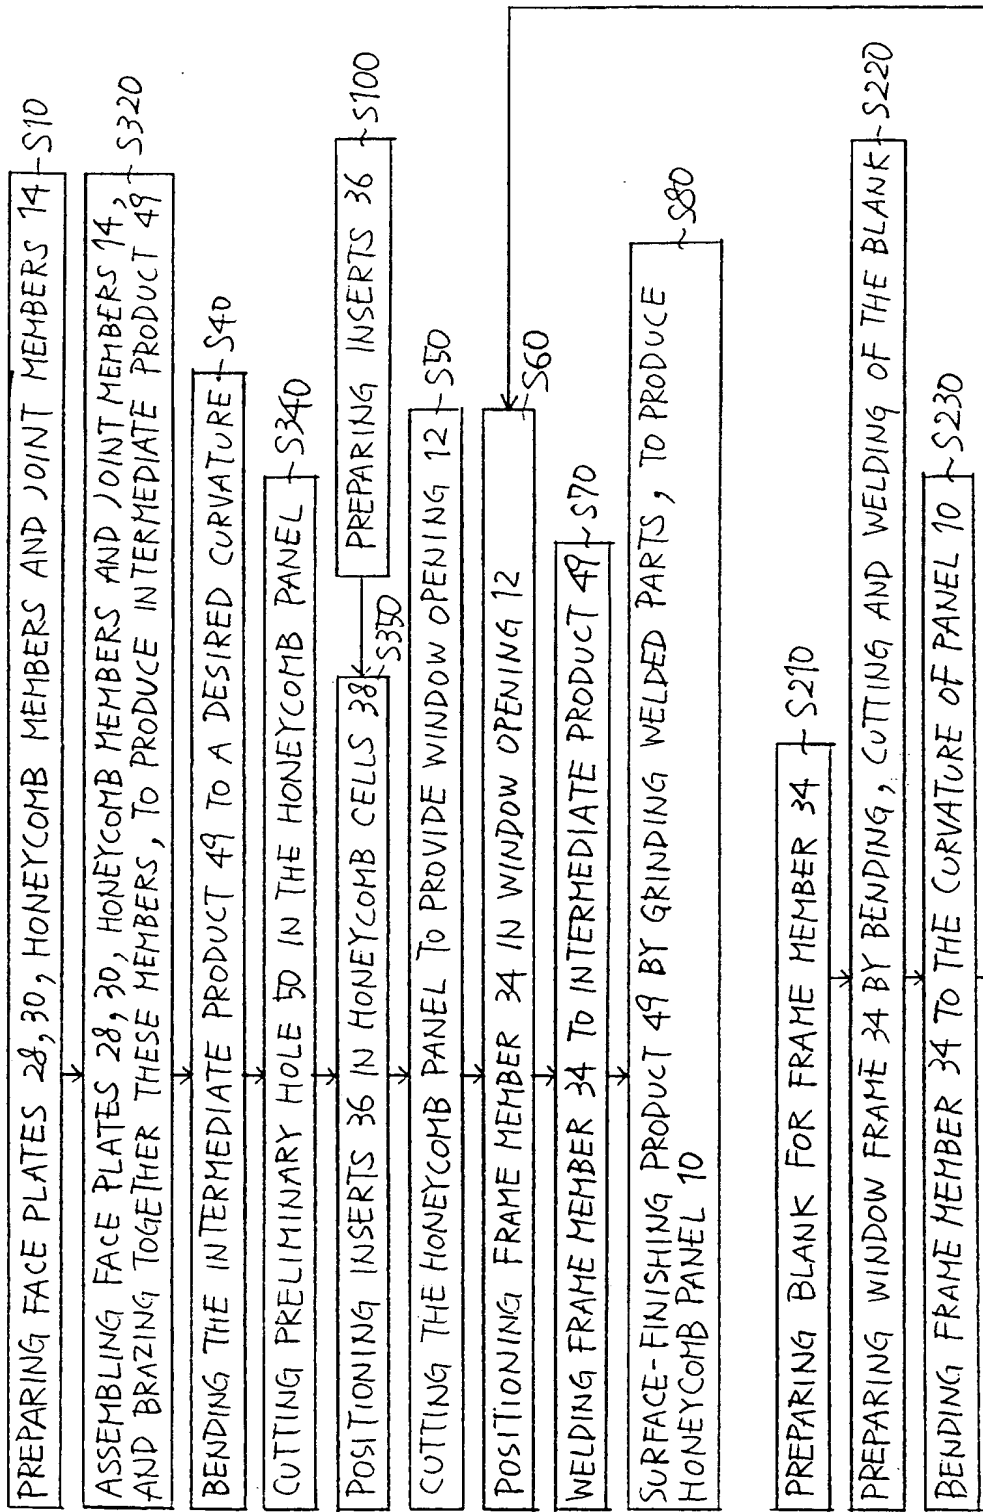 PREPARING FACE PLATES 28, 30, HONEYCOMB MEMBERS AND JOINT MEMBERS 14 ~S10
ASSEMBLING FACE PLATES 28, 30, HONEYCOMB MEMBERS AND JOINT MEMBERS 14, ~S320
AND BRAZING TOGETHER THESE MEMBERS, TO PRODUCE INTERMEDIATE PRODUCT 49
BENDING THE INTERMEDIATE PRODUCT 49 TO A DESIRED CURVATURE ~S40
CUTTING PRELIMINARY HOLE 50 IN THE HONEYCOMB PANEL ~S340
POSITIONING INSERTS 36 IN HONEYCOMB CELLS 38 S350
PREPARING INSERTS 36 ~S100
CUTTING THE HONEYCOMB PANEL TO PROVIDE WINDOW OPENING 12 ~S50
POSITIONING FRAME MEMBER 34 IN WINDOW OPENING 12 S60
WELDING FRAME MEMBER 34 TO INTERMEDIATE PRODUCT 49 ~S70
SURFACE-FINISHING PRODUCT 49 BY GRINDING WELDED PARTS, TO PRODUCE ~S80
HONEYCOMB PANEL 10
PREPARING BLANK FOR FRAME MEMBER 34 ~S210
PREPARING WINDOW FRAME 34 BY BENDING, CUTTING AND WELDING OF THE BLANK ~S220
BENDING FRAME MEMBER 34 TO THE CURVATURE OF PANEL 10 ~S230